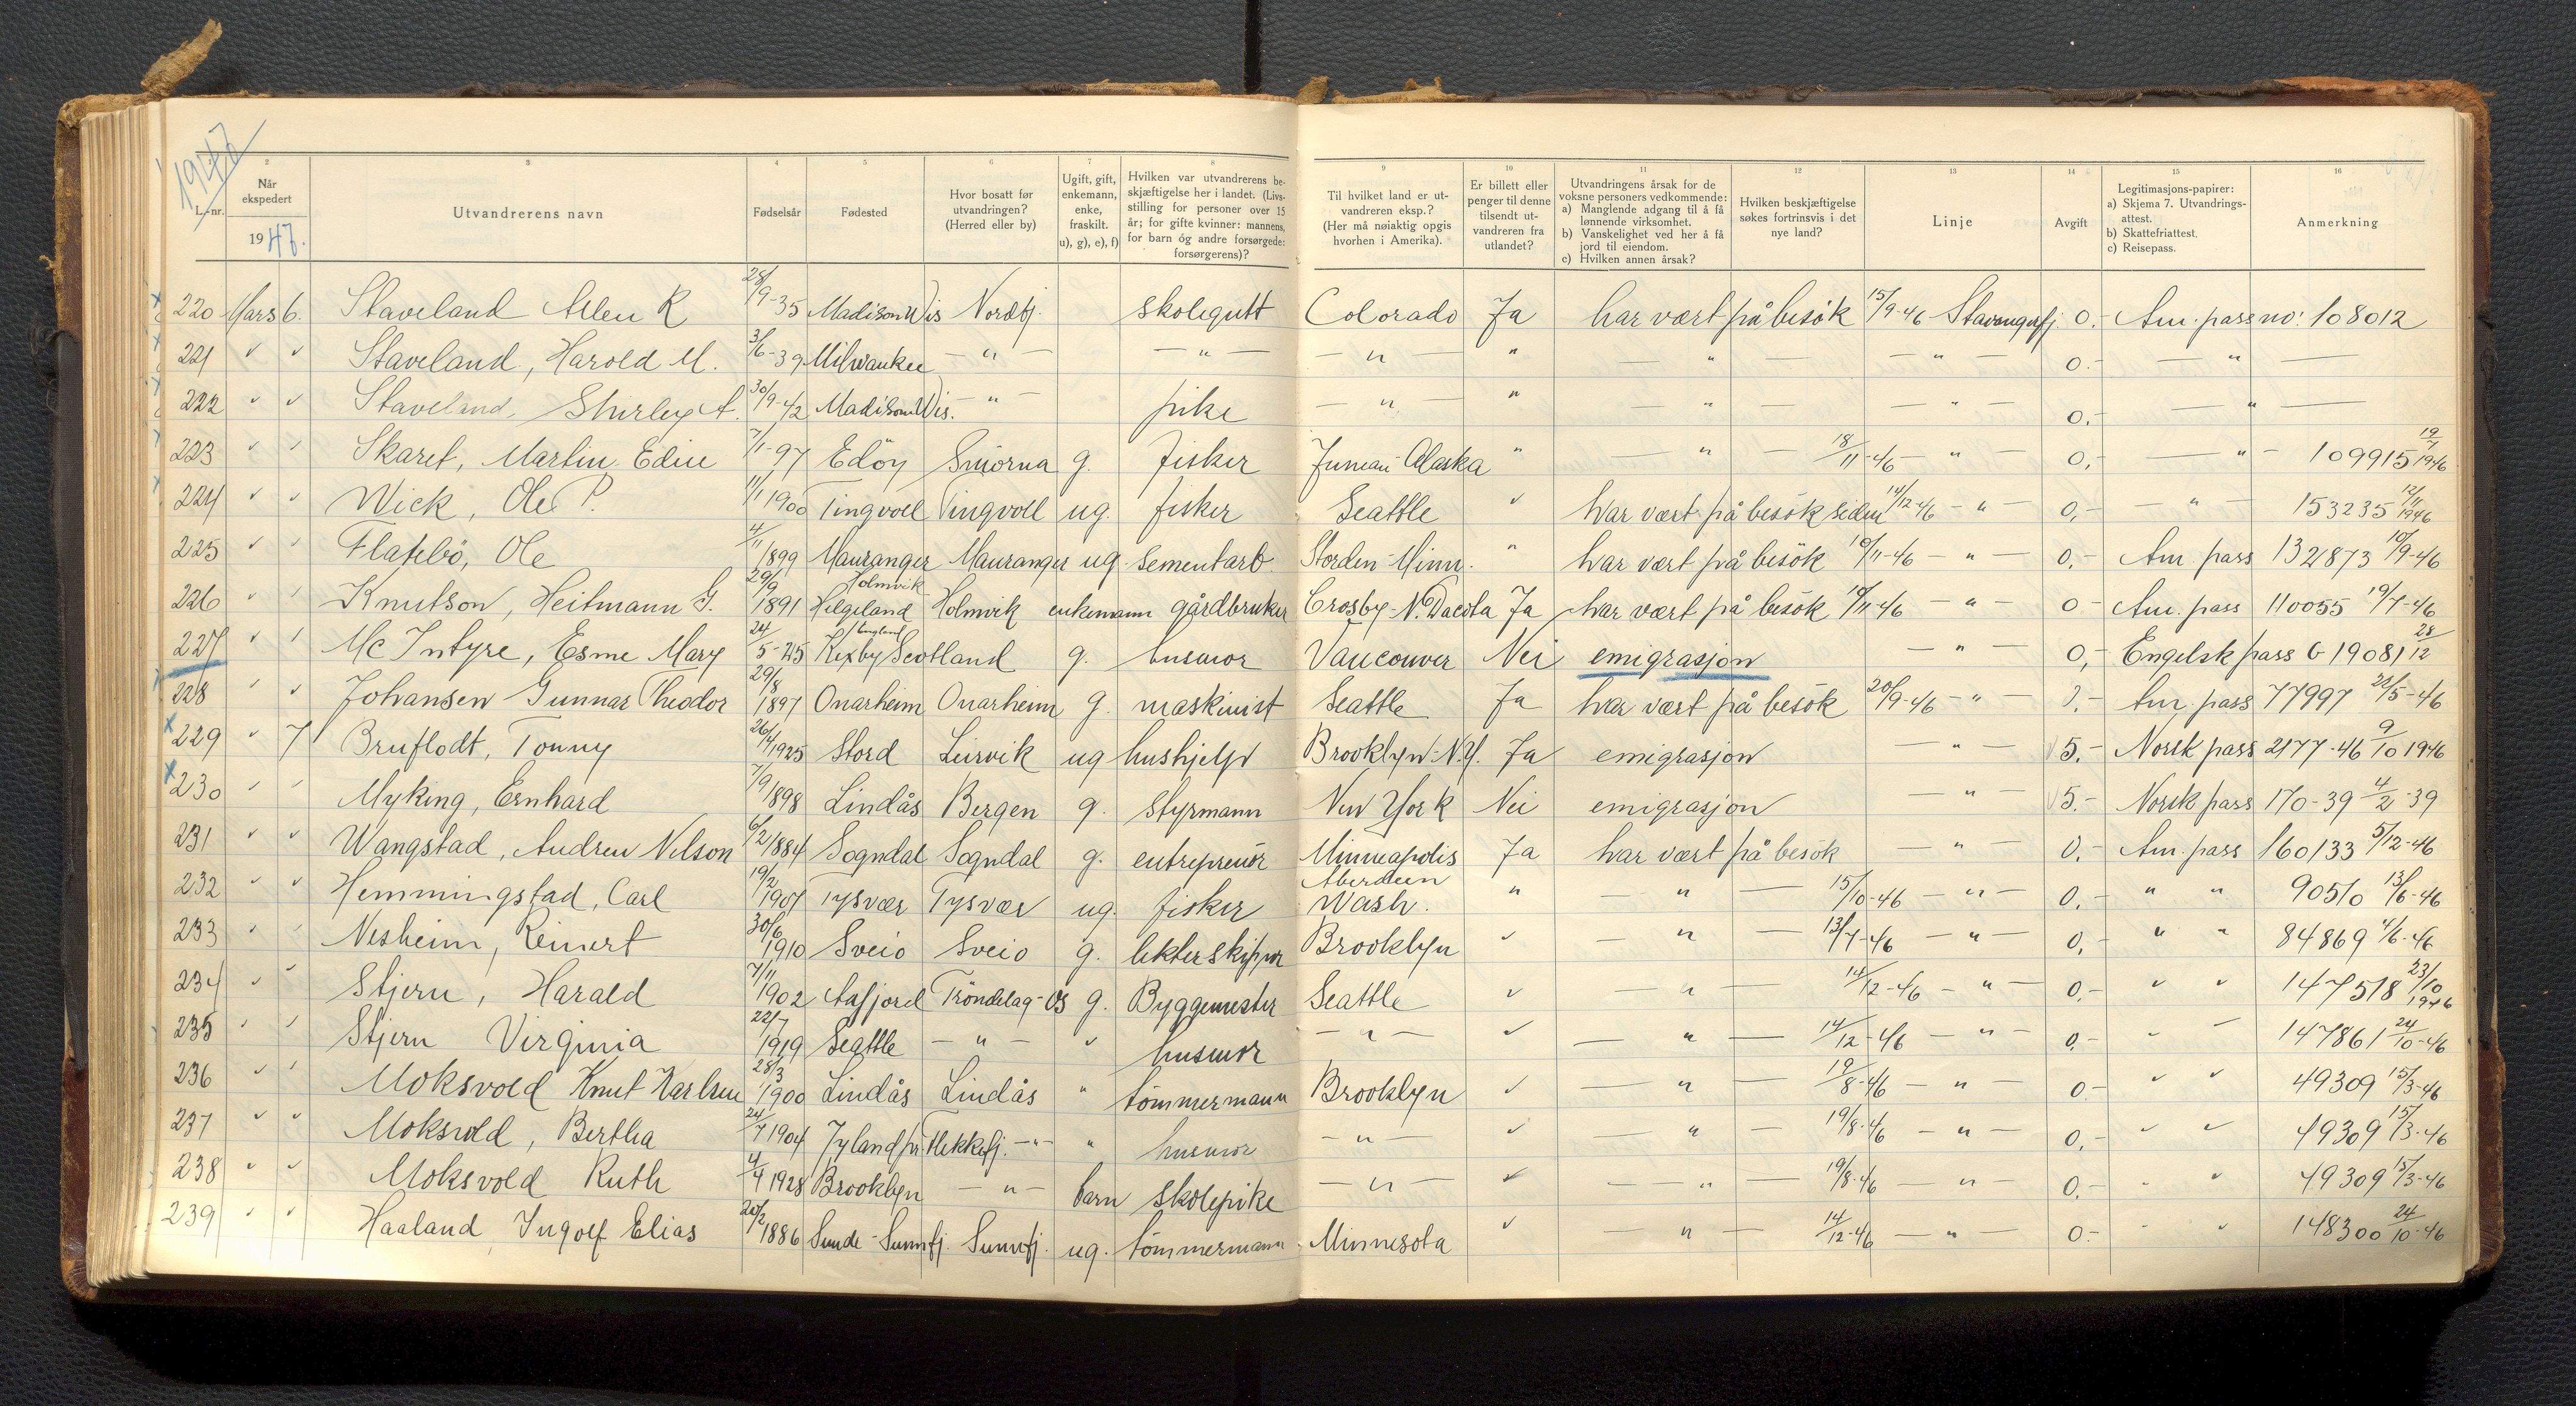 1947
L.-nr.
2 Når ekspedert 1947.
3 Utvandrerens navn
4 Fødselsår
5 Fødested
6 Hvor bosatt før utvandringen? (Herred eller by)
7 Ugift, gift, enkemann, enke, fraskilt. u), g), e), f)
8 Hvilken var utvandrerens beskjæftigelse her i landet. (Livsstilling for personer over 15 år; for gifte kvinner: mannens, for barn óg andre forsørgede: forsørgerens)?
9 Til hvilket land er utvandreren eksp.? (Her må nøiaktig opgis hvorhen i Amerika).
10 Er billett eller penger til denne tilsendt utvandreren fra utlandet?
11 Utvandringens årsak for de voksne personers vedkommende: a) Manglende adgang til å få lønnende virksomhet. b) Vanskelighet ved her å få jord til eiendom. c) Hvilken annen årsak?
12 Hvilken beskjæftigelse søkes fortrinsvis i det nye land?
13 Linje
14 Avgift
15 Legitimasjons-papirer: a) Skjema 7. Utvandringsattest. b) Skattefriattest. c) Reisepass.
16 Anmerkning
220 Mars 6. Staveland Allen R 28/9-35 Madison Wis Nordbj. skolegutt Colorado Ja har vært på besök 15/9-46 Stavangerfj. 0.- Am. pass no: 108012
221 " " Staveland, Harold M. 3/6-39 Milwaukee - " - - " - - " - " - " - - " - 0.- - " -
222 " " Staveland, Shirley A. 30/9-42 Madison Wis. - " - pike - " - " - " - - " - 0.- - " -
223 " " Skaret, Martin Edin 7/1-97 Edöy Smörna g. fisker Juneau Alaska " - " - 18/11-46 - " - 0,- - " - 109915 19/7 1946
224 " " Wick, Ole P. 11/1 1900 Tingvoll Tingvoll ug. fisker Seattle " har vært på besök siden 14/12-46 - " - 0,- - " - 153235 12/11 1946
225 " " Flatebö, Ole 4/11 1899 Mauranger Mauranger ug. sementarb. Storden-Minn. " har vært på besök 10/11-46 - " - 0,- Am. pass 132873 10/9-46
226 " " Knutson, Heitmann G. 29/9 1891 Holmvik Helgeland Holmvik enkemann gårdbruker Crosby-N.Dacota Ja har vært på besök 10/11-46 - " - 0- Am. pass 110055 19/7-46
227 " " Mc Intyre, Esme Mary 24/5-25 Kexby England Scotland g. husmor Vancouver Nei emigrasjon - " - 0,- Engelsk pass G 19081 28/12
228 " " Johansen Gunnar Theodor 29/8 1897 Onarheim Onarheim g. maskinist Seattle Ja har vært på besök 20/9-46 - " - 0.- Am. pass 77997 21/5-46
229 " 7 Bruflodt, Tonny 26/4 1925 Stord Leirvik ug hushjelp Brooklyn-N.Y. Ja emigrasjon - " - 5.- Norsk pass 2177-46 9/10 1946
230 " " Myking, Ernhard 7/9 1898 Lindås Bergen g. styrmann New York Nei emigrasjon - " - 5.- Norsk pass 170-39 4/2-39
231 " " Wangstad, Andrew Nelson 6/2 1884 Sogndal Sogndal g. entreprenör Minneapolis Ja har vært på besök - " - 0.- Am. pass 160133 5/12-46
232 " " Hemmingstad, Carl 19/2 1907 Tysvær Tysvær ug. fisker Aberdeen Wash. " - " - 15/10-46 - " - 0.- " " 90510 13/6-46
233 " " Nesheim, Reinert 30/6 1910 Sveio Sveio g. lekterskipper Brooklyn " - " - 13/7-46 - " - 0,- " " 84869 4/6-46
234 " " Stjern, Harald 7/11 1902 Aafjord Tröndelag-Os g. Byggemester Seattle " - " - 14/12-46 - " - 0.- " " 147518 23/10 1946
235 " " Stjern Virginia 22/7 1919 Seattle - " - " husmor - " - " - " - 14/12-46 - " - 0,- " " 147861 24/10-46
236 " " Moksvold Knut Karlsen 28/3 1900 Lindås Lindås " tömmermann Brooklyn " - " - 19/8-46 - " - 0- " " 49309 15/3-46
237 " " Moksvold, Bertha 24/7 1904 Jyland pr Flekkefj. - " - " husmor - " - " - " - 19/8-46 - " - 0,- " " 49309 15/3-46
238 " " Moksvold Ruth 4/4 1928 Brooklyn - " - barn skolepike - " - " - " - 19/8-46 - " - 0,- " " 49309 15/3-46
239 " " Haaland Ingolf Elias 20/2 1886 Sunde-Sunnfj. Sunnfj. ug. tömmermann Minnesota " - " - 14/12-46 - " - 0- " " 148300 24/10-46